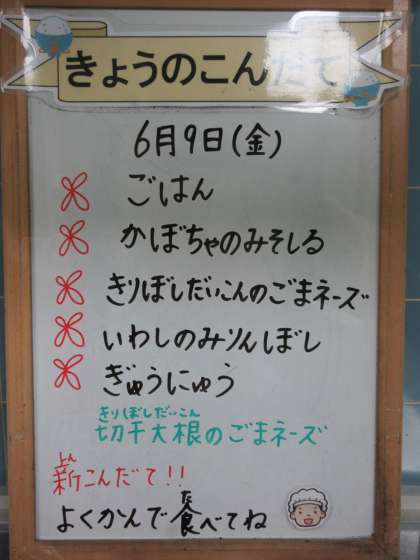 きょうのこんだて
6月9日(金)
ごはん
かぼちゃのみそしる
きりぼしだいこんのごまネーズ
いわしのみりんぼし
ぎゅうにゅう
きりぼしだいこん
切干大根のごまネーズ
しん
新こんだて!!
た
よくかんで食べてね